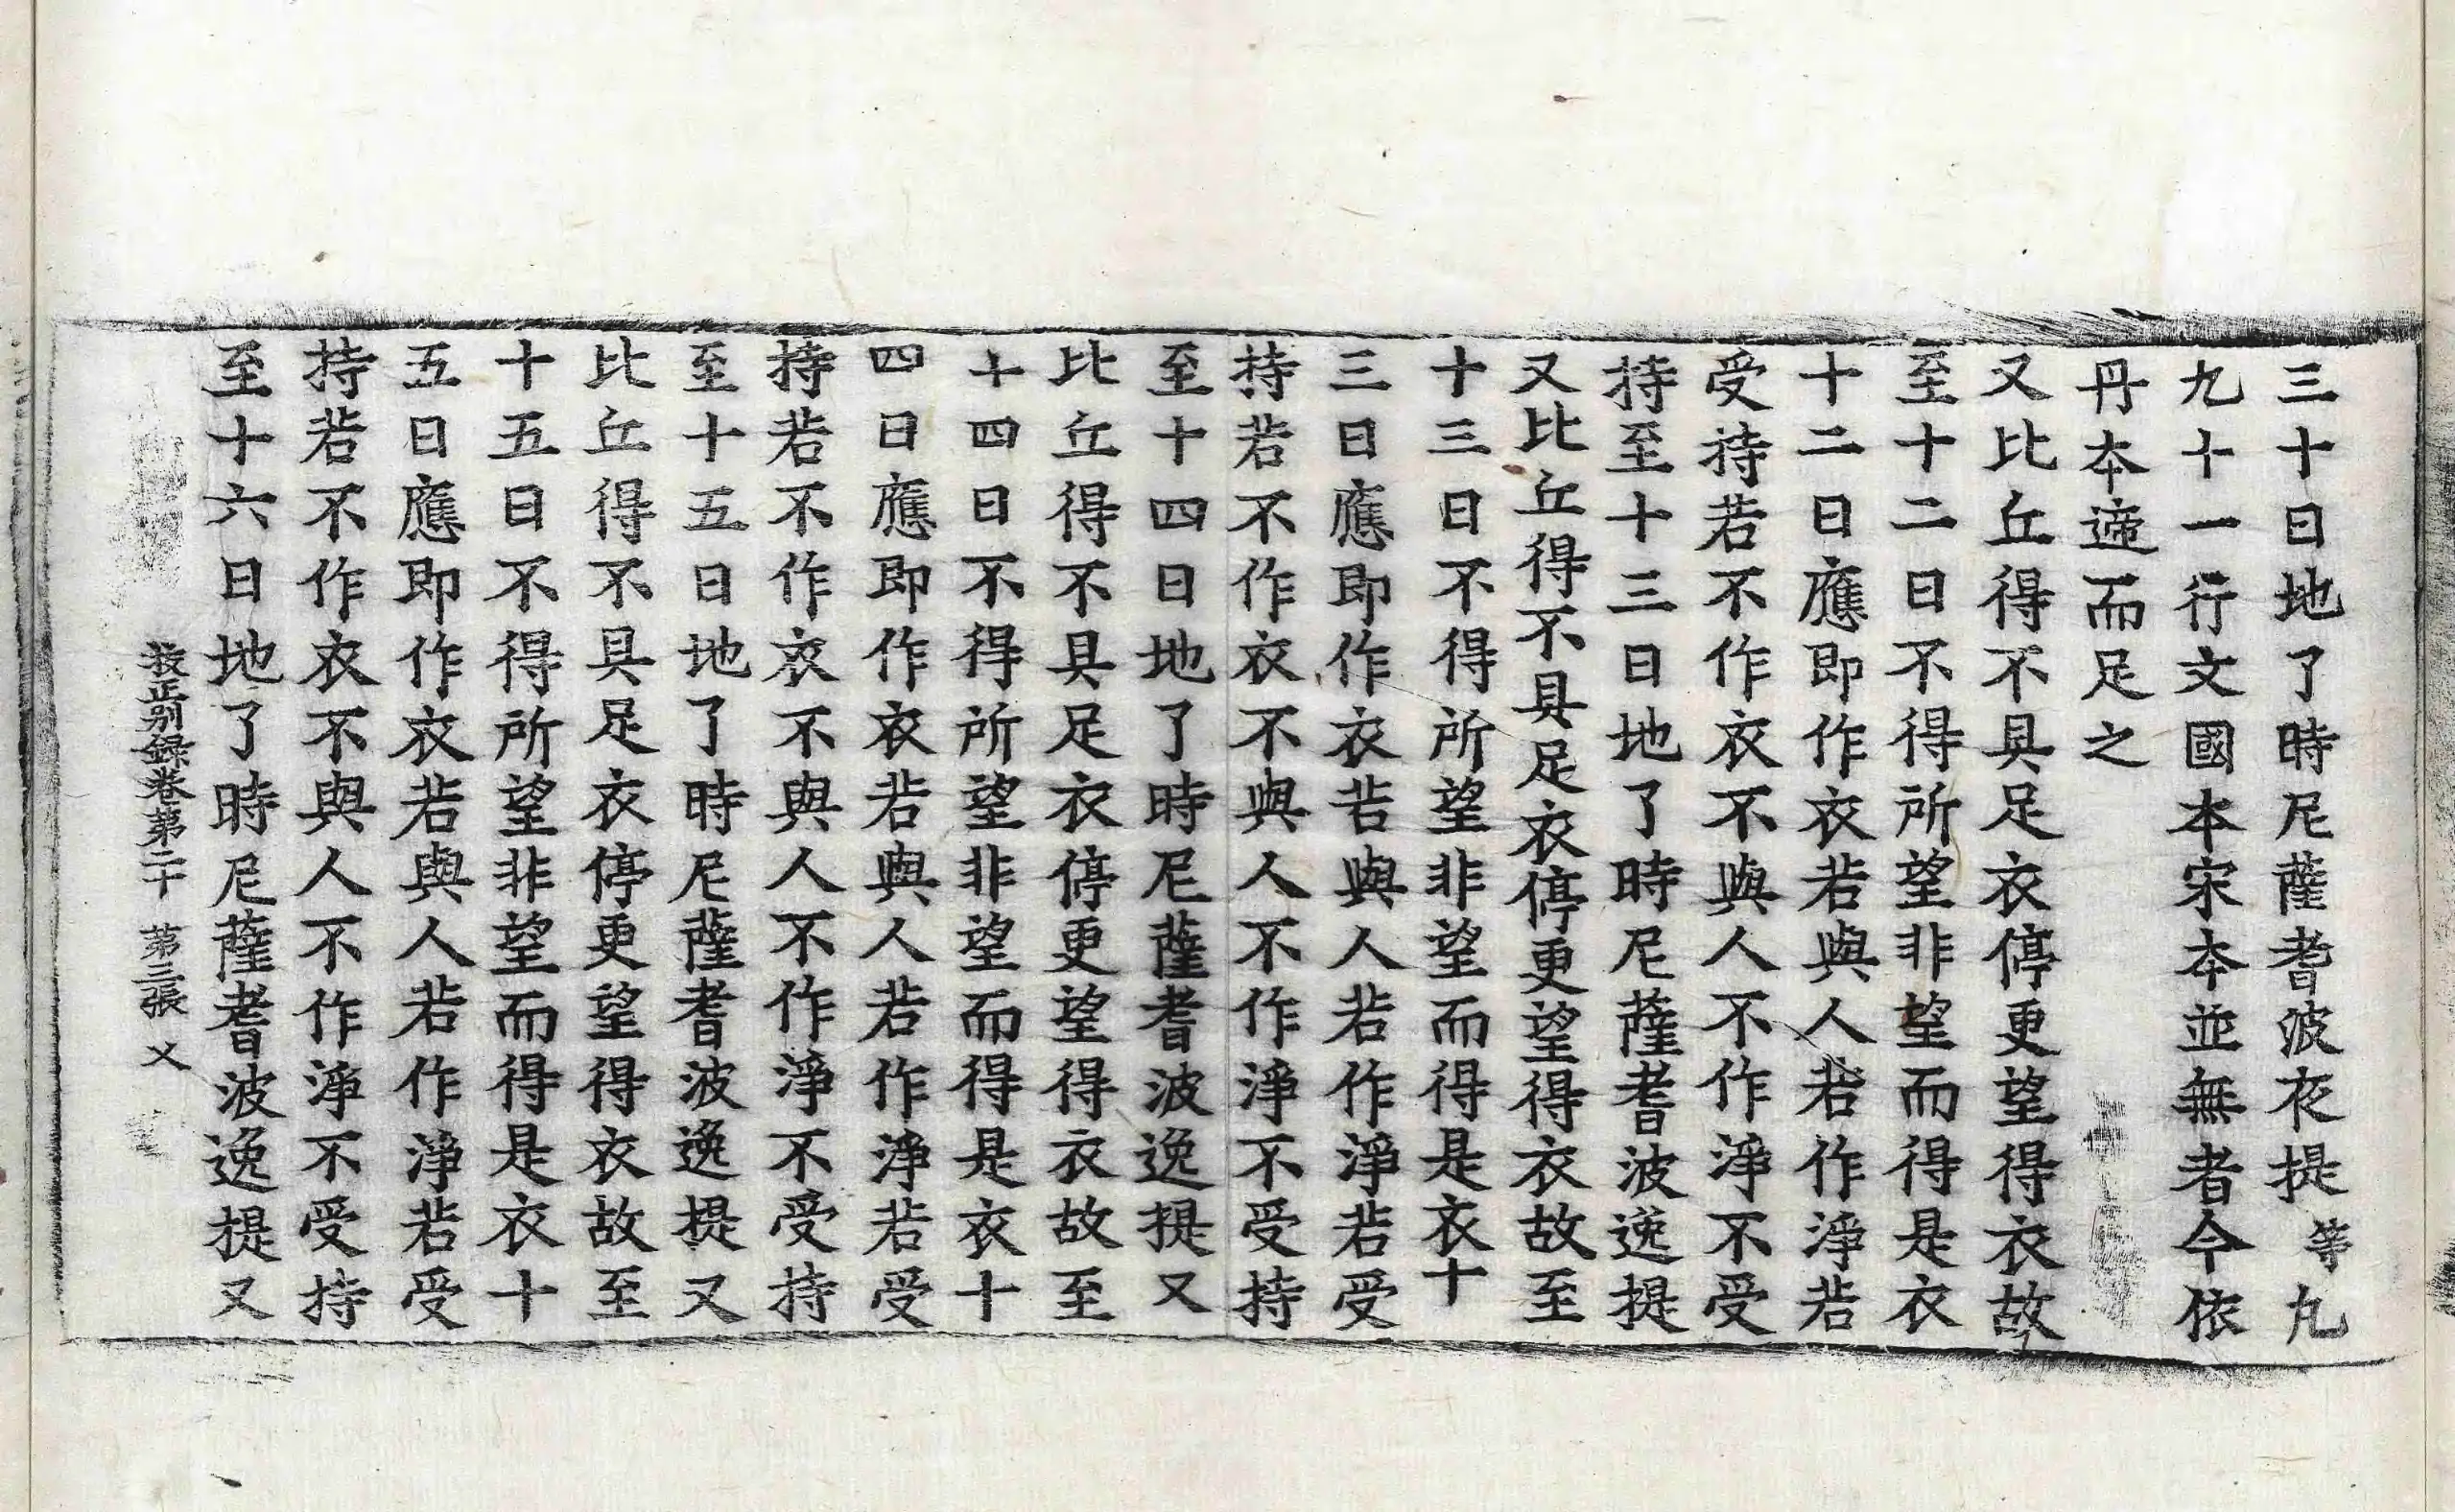 三十日地了時尼薩耆波夜提等九
九十一行文國本宋本並無者今依
丹本遆而足之
又比丘得不具足衣停更望得衣故
至十二日不得所望非望而得是衣
十二日應即作衣若與人若作淨若
受持若不作衣不與人不作淨不受
持至十三日地了時尼薩耆波逸提
又比丘得不具足衣停更望得衣故至
十三日不得所望非望而得是衣十
三日應即作衣若與人若作淨若受
持若不作衣不與人不作淨不受持
至十四日地了時尼薩耆波逸提又
比丘得不具足衣停更望得衣故至
十四日不得所望非望而得是衣十
四日應即作衣若與人若作淨若受
持若不作衣不與人不作淨不受持
至十五日地了時尼薩耆波逸提又
比丘得不具足衣停更望得衣故至
十五日不得所望非望而得是衣十
五日應即作衣若與人若作淨若受
持若不作衣不與人不作淨不受持
至十六日地了時尼薩耆波逸提又
校正別録卷第二十 第三張 乂